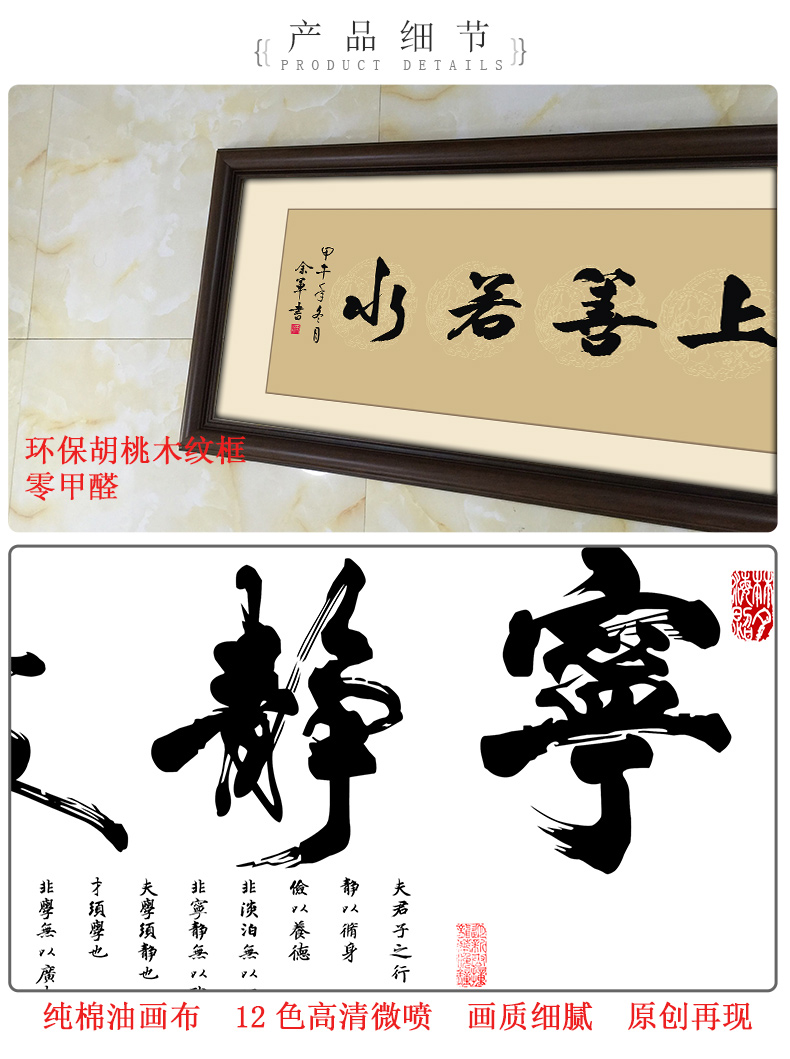 产品细节
PRODUCT DETAILS
上善若水
甲午年冬月
余军书
环保胡桃木纹框
零甲醛
寧靜
夫君子之行
静以脩身
儉以養德
非淡泊無以
非寧静無以
夫學須静也
才須學也
非學無以廣
纯棉油画布 12色高清微喷 画质细腻 原创再现